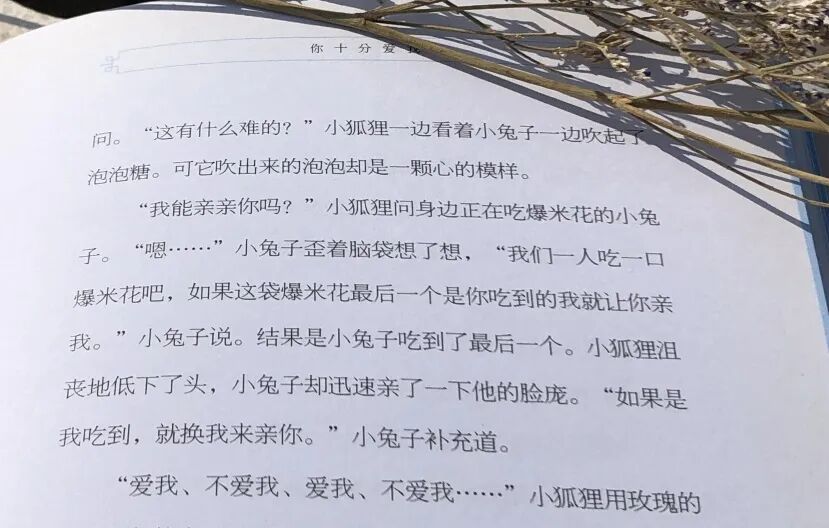 你十分爱我
问。“这有什么难的？”小狐狸一边看着小兔子一边吹起了
泡泡糖。可它吹出来的泡泡却是一颗心的模样。
“我能亲亲你吗？”小狐狸问身边正在吃爆米花的小兔
子。“嗯……”小兔子歪着脑袋想了想，“我们一人吃一口
爆米花吧，如果这袋爆米花最后一个是你吃到的我就让你亲
我。”小兔子说。结果是小兔子吃到了最后一个。小狐狸沮
丧地低下了头，小兔子却迅速亲了一下他的脸庞。“如果是
我吃到，就换我来亲你。”小兔子补充道。
“爱我、不爱我、爱我、不爱我……”小狐狸用玫瑰的